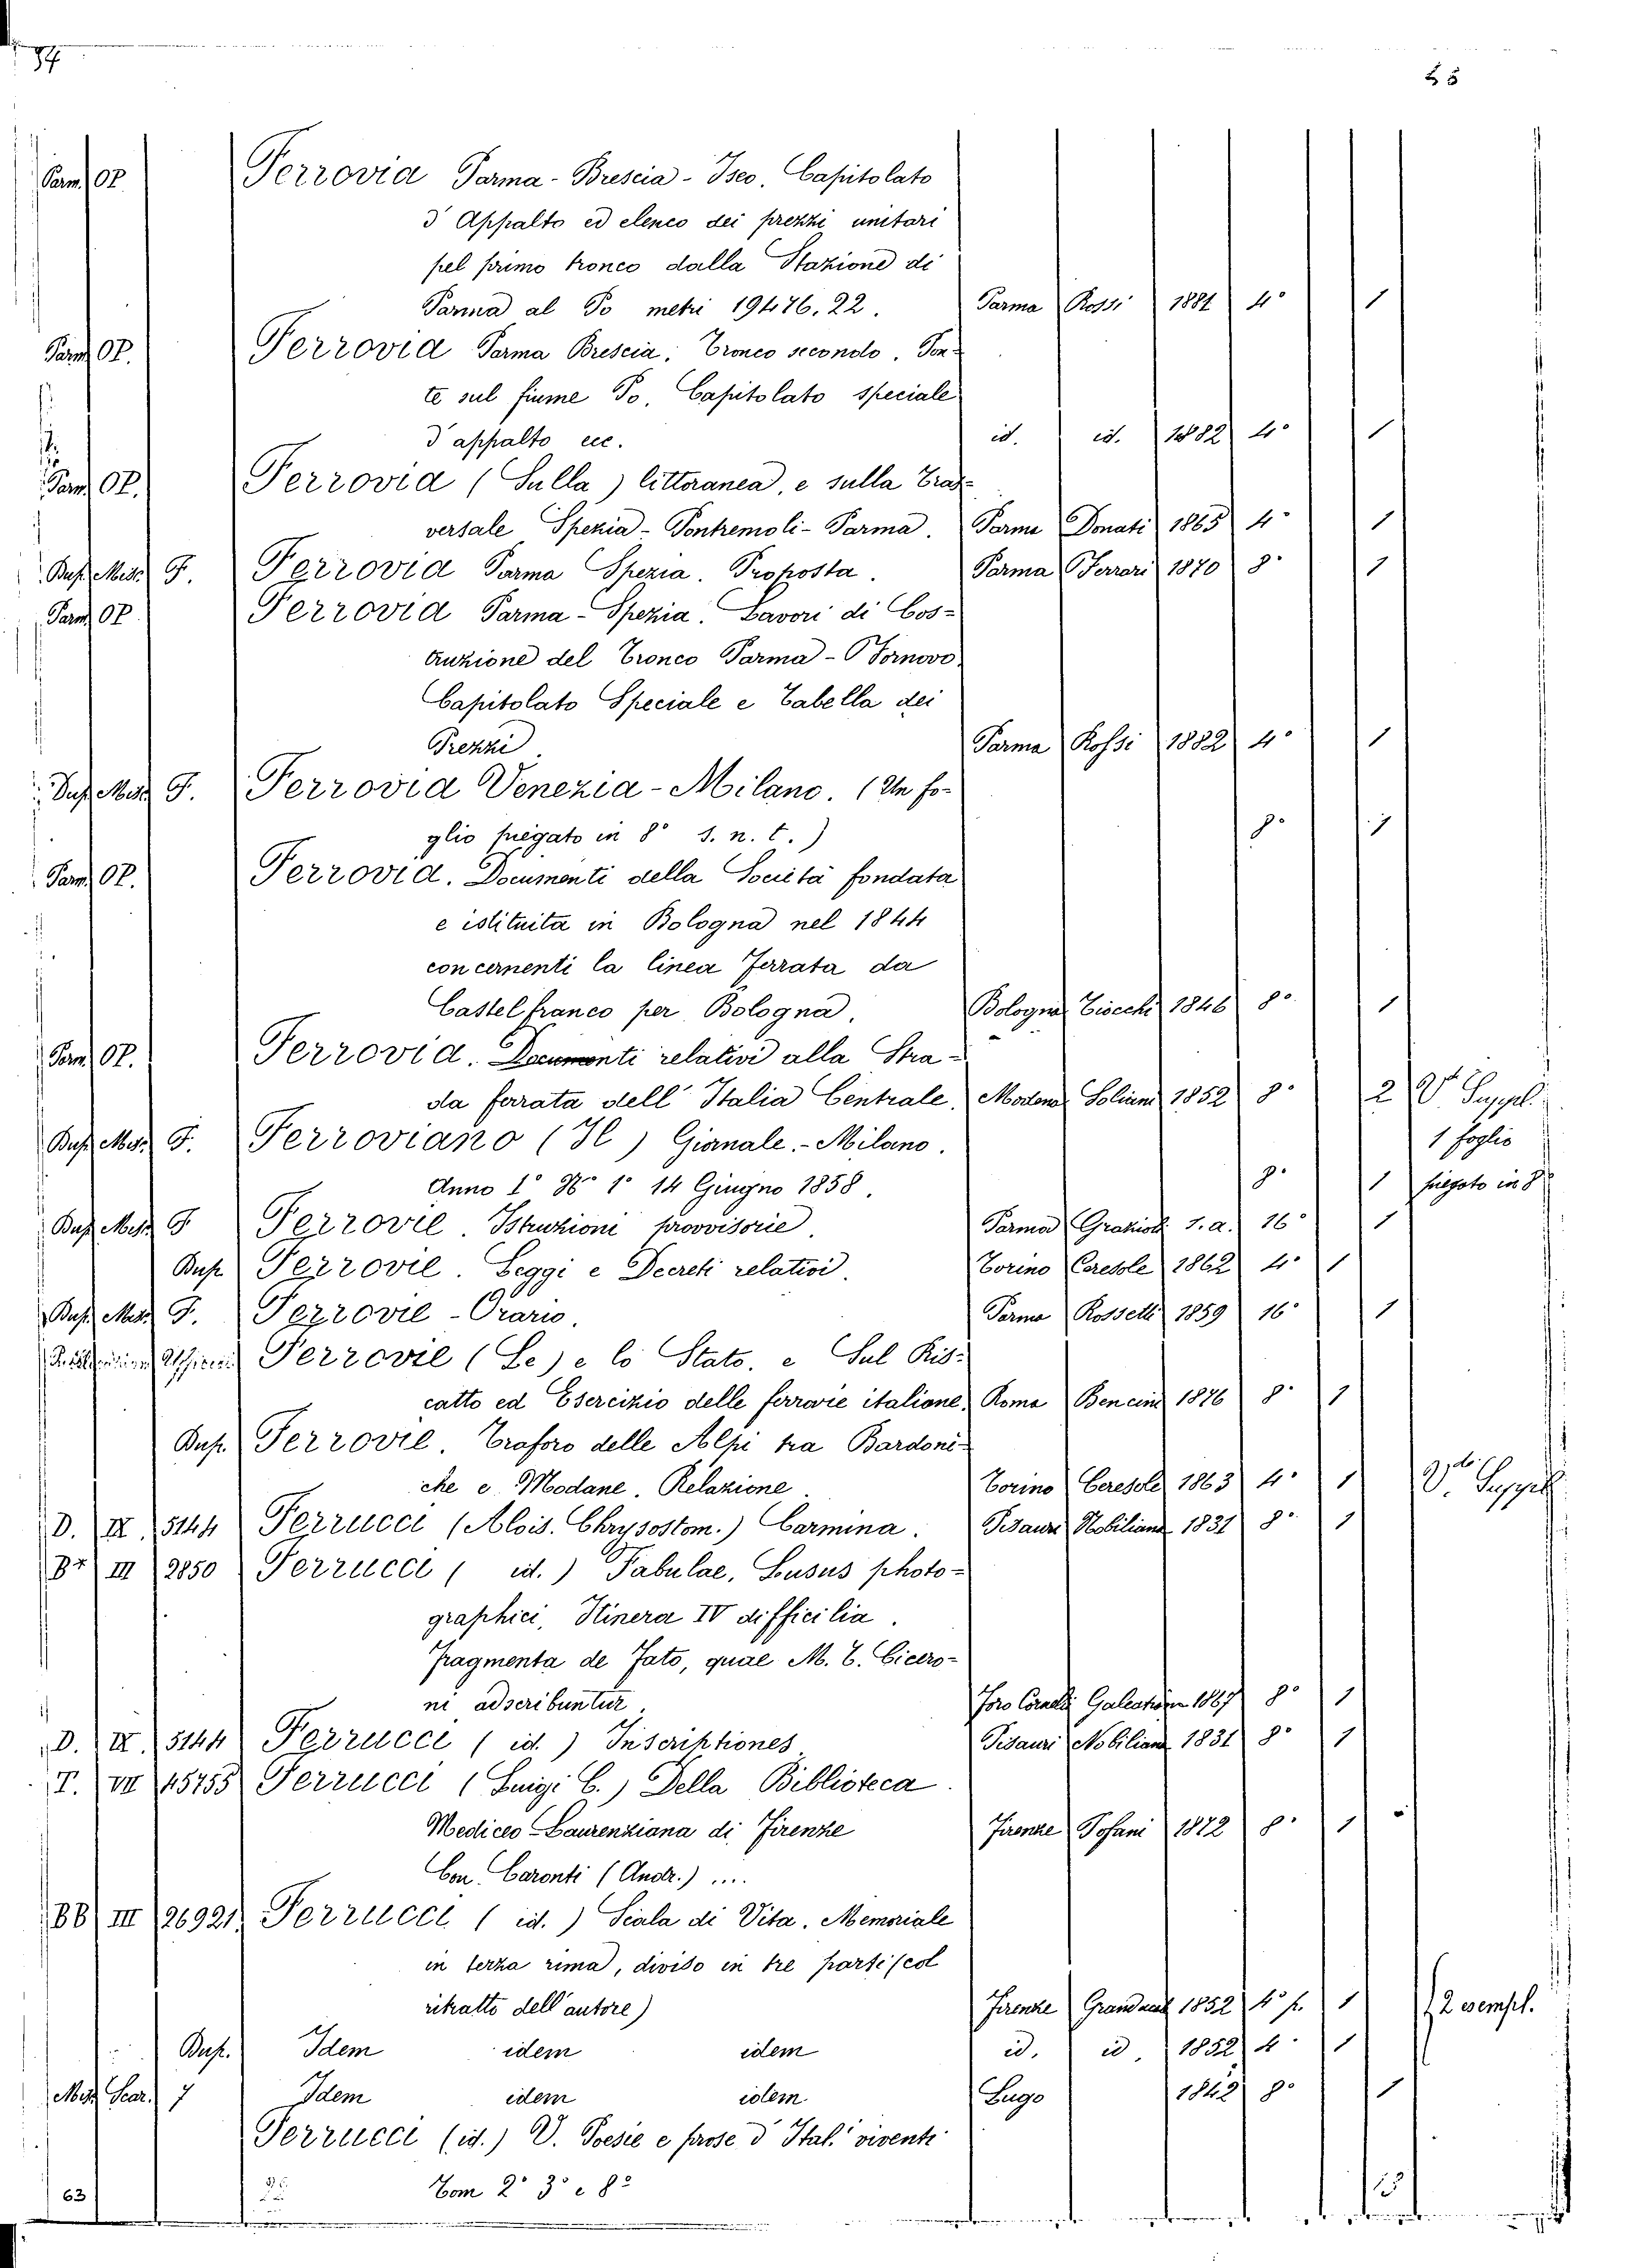 84
Parm. OP. Ferrovia Parma-Brescia-Iseo. Capitolato
d'Appalto ed elenco dei prezzi unitari
pel primo tronco dalla Stazione di
Parma al Po metri 19476,22. Parma Rossi 1881 4° 1
Parm. OP. Ferrovia Parma Brescia, Tronco secondo. Pon-
te sul fiume Po. Capitolato speciale
d'appalto ecc. id. id. 1882 4° 1
Parm. OP. Ferrovia (Sulla) littoranea, e sulla Tras-
versale Spezia-Pontremoli-Parma. Parma Donati 1865 4° 1
Busp. Misc. F. Ferrovia Parma Spezia. Proposta. Parma Ferrari 1870 8° 1
Parm. OP. Ferrovia Parma-Spezia. Lavori di Cos-
truzione del Tronco Parma-Fornovo
Capitolato Speciale e Tabella dei
Prezzi Parma Rossi 1882 4° 1
F. Ferrovia Venezia-Milano. (Un fo-
glio piegato in 8° s. n. t.) 8° 1
Parm. OP. Ferrovia. Documenti della Società fondata
e istituita in Bologna nel 1844
concernenti la linea ferrata da
Castelfranco per Bologna. Bologna Tiocchi 1846 8° 1
Parm. OP. Ferrovia. Documenti relativi alla Stra-
da ferrata dell'Italia Centrale. Modena Soliani 1852 8° 2 V. Suppl.
F. Ferroviano (Il) Giornale.-Milano. 1 foglio
Anno 1° N° 1° 14 Giugno 1858. 8° 1 piegato in 8°
F. Ferrovie. Istruzioni provvisorie. Parma Grazioli s.a. 16° 1
Busp. Ferrovie. Leggi e Decreti relativi. Torino Ceresole 1862 4° 1
F. Ferrovie-Orario. Parma Rossetti 1859 16° 1
Ferrovie (Le) e lo Stato. e Sul Ris-
catto ed Esercizio delle ferrovie italiane. Roma Bencini 1876 8° 1
Busp. Ferrovie. Traforo delle Alpi tra Bardoni-
che e Modane. Relazione. Torino Ceresole 1863 4° 1 V. Suppl.
D. IX. 5144 Ferrucci (Alois. Chrysostom.) Carmina. Pisauri Nobiliana 1831 8° 1
III 2850 Ferrucci (id.) Fabulae, Lusus photo-
graphici, Itinera IV difficilia.
Fragmenta de Fato, quae M. T. Cicero-
ni adscribuntur. Foro Cornelii Galeatiana 1867 8° 1
D. IX. 5144 Ferrucci (id.) Inscriptiones Pisauri Nobiliana 1831 8° 1
T. VII 45755 Ferrucci (Luigi C.) Della Biblioteca
Mediceo-Laurenziana di Firenze Firenze Tofani 1872 8° 1
Con. Caronti (Andr.) ....
BB III 26921 Ferrucci (id.) Scala di Vita. Memoriale
in terza rima, diviso in tre parti (col
ritratto dell'autore) Firenze 1852 4° p. 1 2 esempl.
Busp. Idem idem idem id. id. 1852 4° 1
Misc. Scar. 7 Idem idem idem Lugo 8° 1
Ferrucci (id.) V. Poesie e prose d'Ital.i viventi
Tom 2° 3° e 8°
63